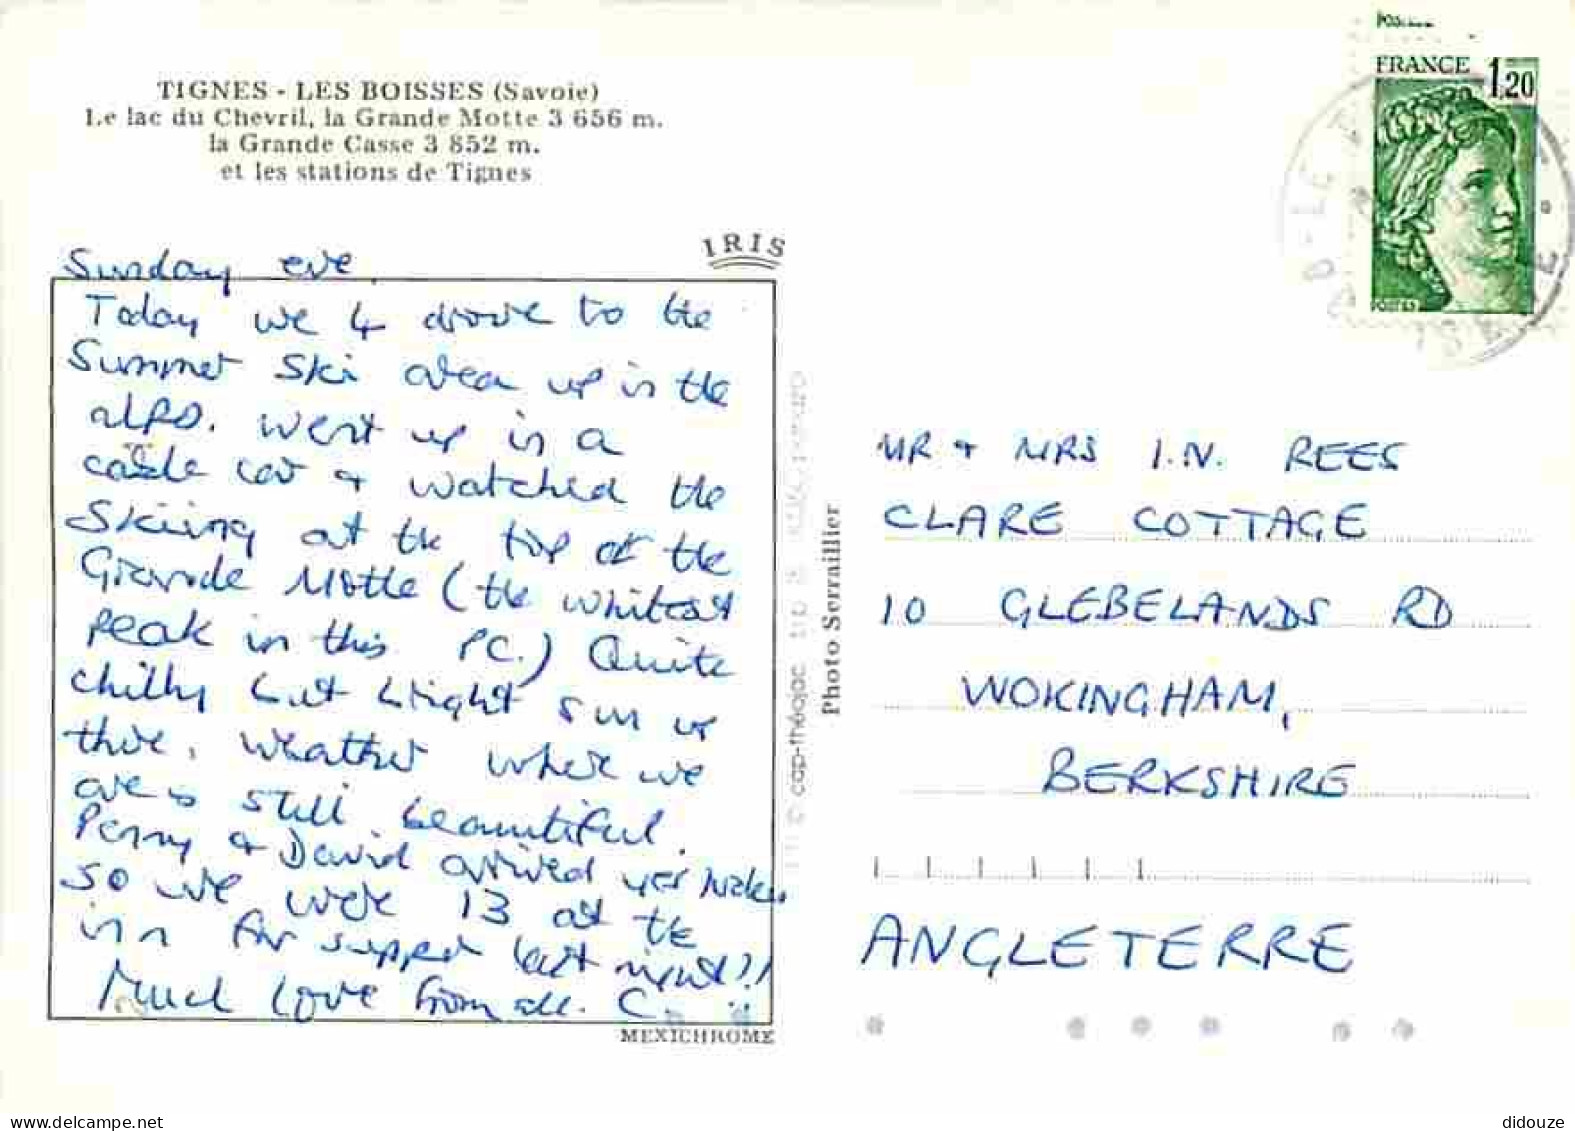 TIGNES - LES BOISSES (Savoie)
Le lac du Chevril, la Grande Motte 3 656 m.
la Grande Casse 3 852 m.
et les stations de Tignes
IRIS
Sunday eve.
Today we 4 drove to the
Summer Ski area up in the
alps. Went up in a
cable car + watched the
Skiing at the top of the
Grande Motte (the whitest
peak in this PC.) Quite
chilly but bright sun up
there. Weather where we
are is still beautiful.
Penny + David arrived
so we were 13 at the
inn for supper last night!!
Much Love from all. C.
MEXICHROME
Photo Serraillier
cap-théojac
POSTES
FRANCE 1,20
POSTES
MR + MRS I.N. REES
CLARE COTTAGE
10 GLEBELANDS RD
WOKINGHAM,
BERKSHIRE
ANGLETERRE
didouze